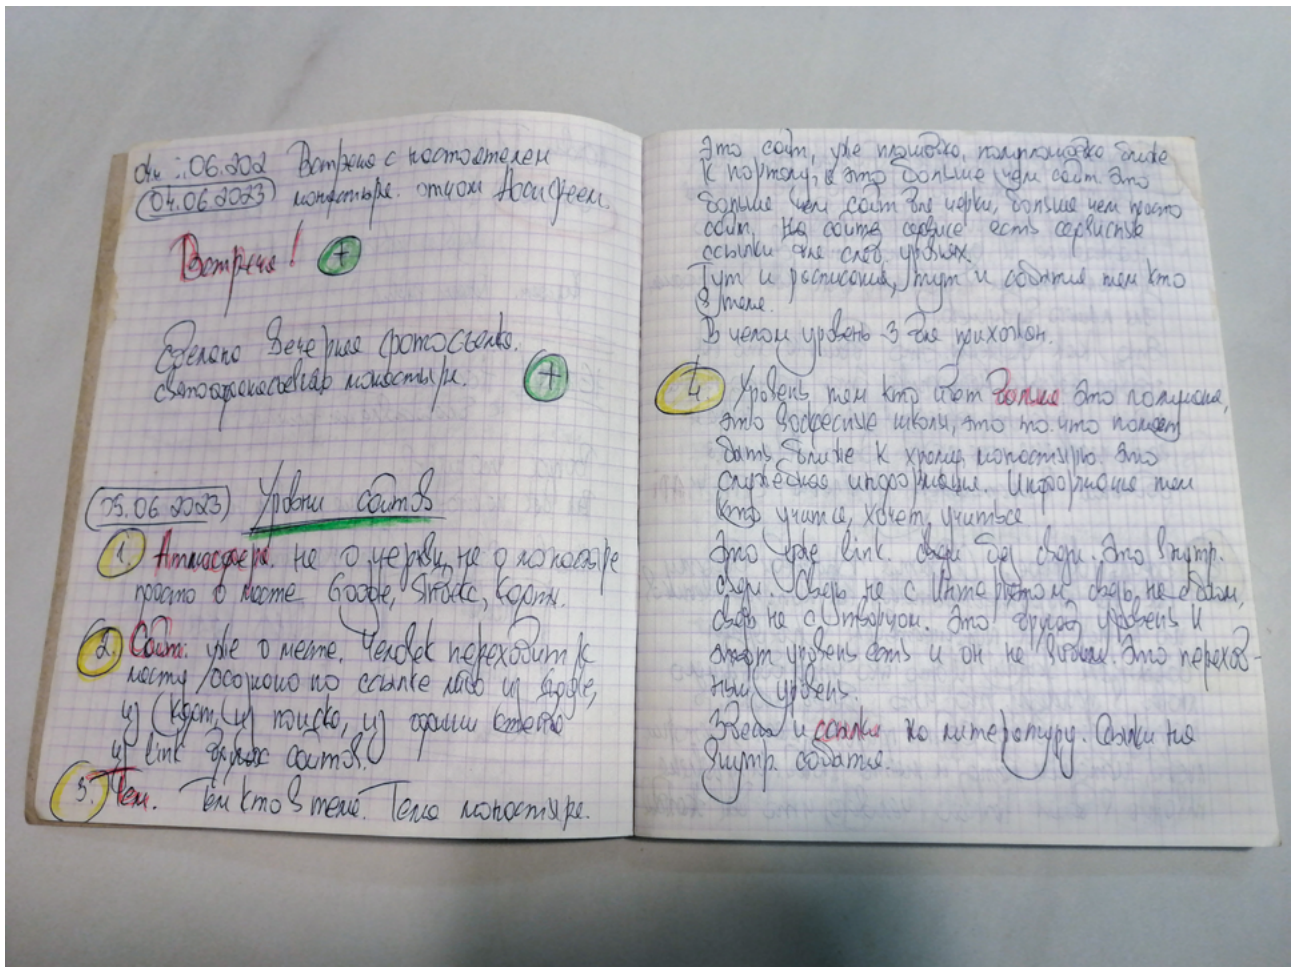 04.06.2023 Встреча с настоятелем
монастыря. отцом
Встреча! +
Сделана Вечерняя фотосъемка.
монастыря. +
05.06.2023 Уровни сайтов
1. Атмосфера. не о церкви, не о монастыре
просто о месте Google, Карты.
2. Сайт. уже о месте. Человек переходит к
месту /осознано по ссылке либо из Google,
из карт, из поиска, из
из link других сайтов.
3. Тем. Тем кто в теме. Тема монастыря.
Это сайт, уже площадка, полуплощадка ближе
к порталу, а это больше чем сайт. Это
больше чем сайт для церкви, больше чем просто
сайт. На сайте сервисе есть сервисные
ссылки для след. уровнях.
Тут и расписания, тут и события тем кто
в теме.
В целом уровень 3 для прихожан.
4. Уровень тем кто ищет больше Это
это воскресные школы, это то что поможет
быть ближе к храму, монастырю. Это
служебная информация. Информация тем
кто учится, хочет учиться
Это уже link. связи без связи. Это внутр.
связи. Связь не с Интернетом, связь не с
связь не с Это другой уровень и
этот уровень есть и он не Это переход-
ный уровень.
Здесь и ссылки на литературу. Ссылки на
внутр. события.